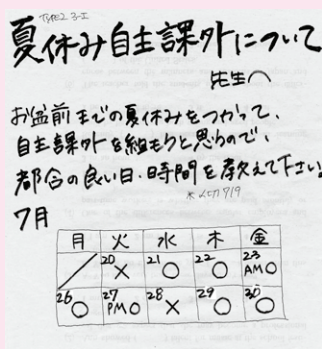 夏休み自主課外について
先生へ
お盆前までの夏休みをつかって、
自主課外を組もうと思うので、
都合の良い日・時間を教えて下さい。
7月
月 火 水 木 金
20 × 21 ○ 22 ○ 23 AM○
26 ○ 27 PM○ 28 × 29 ○ 30 ○